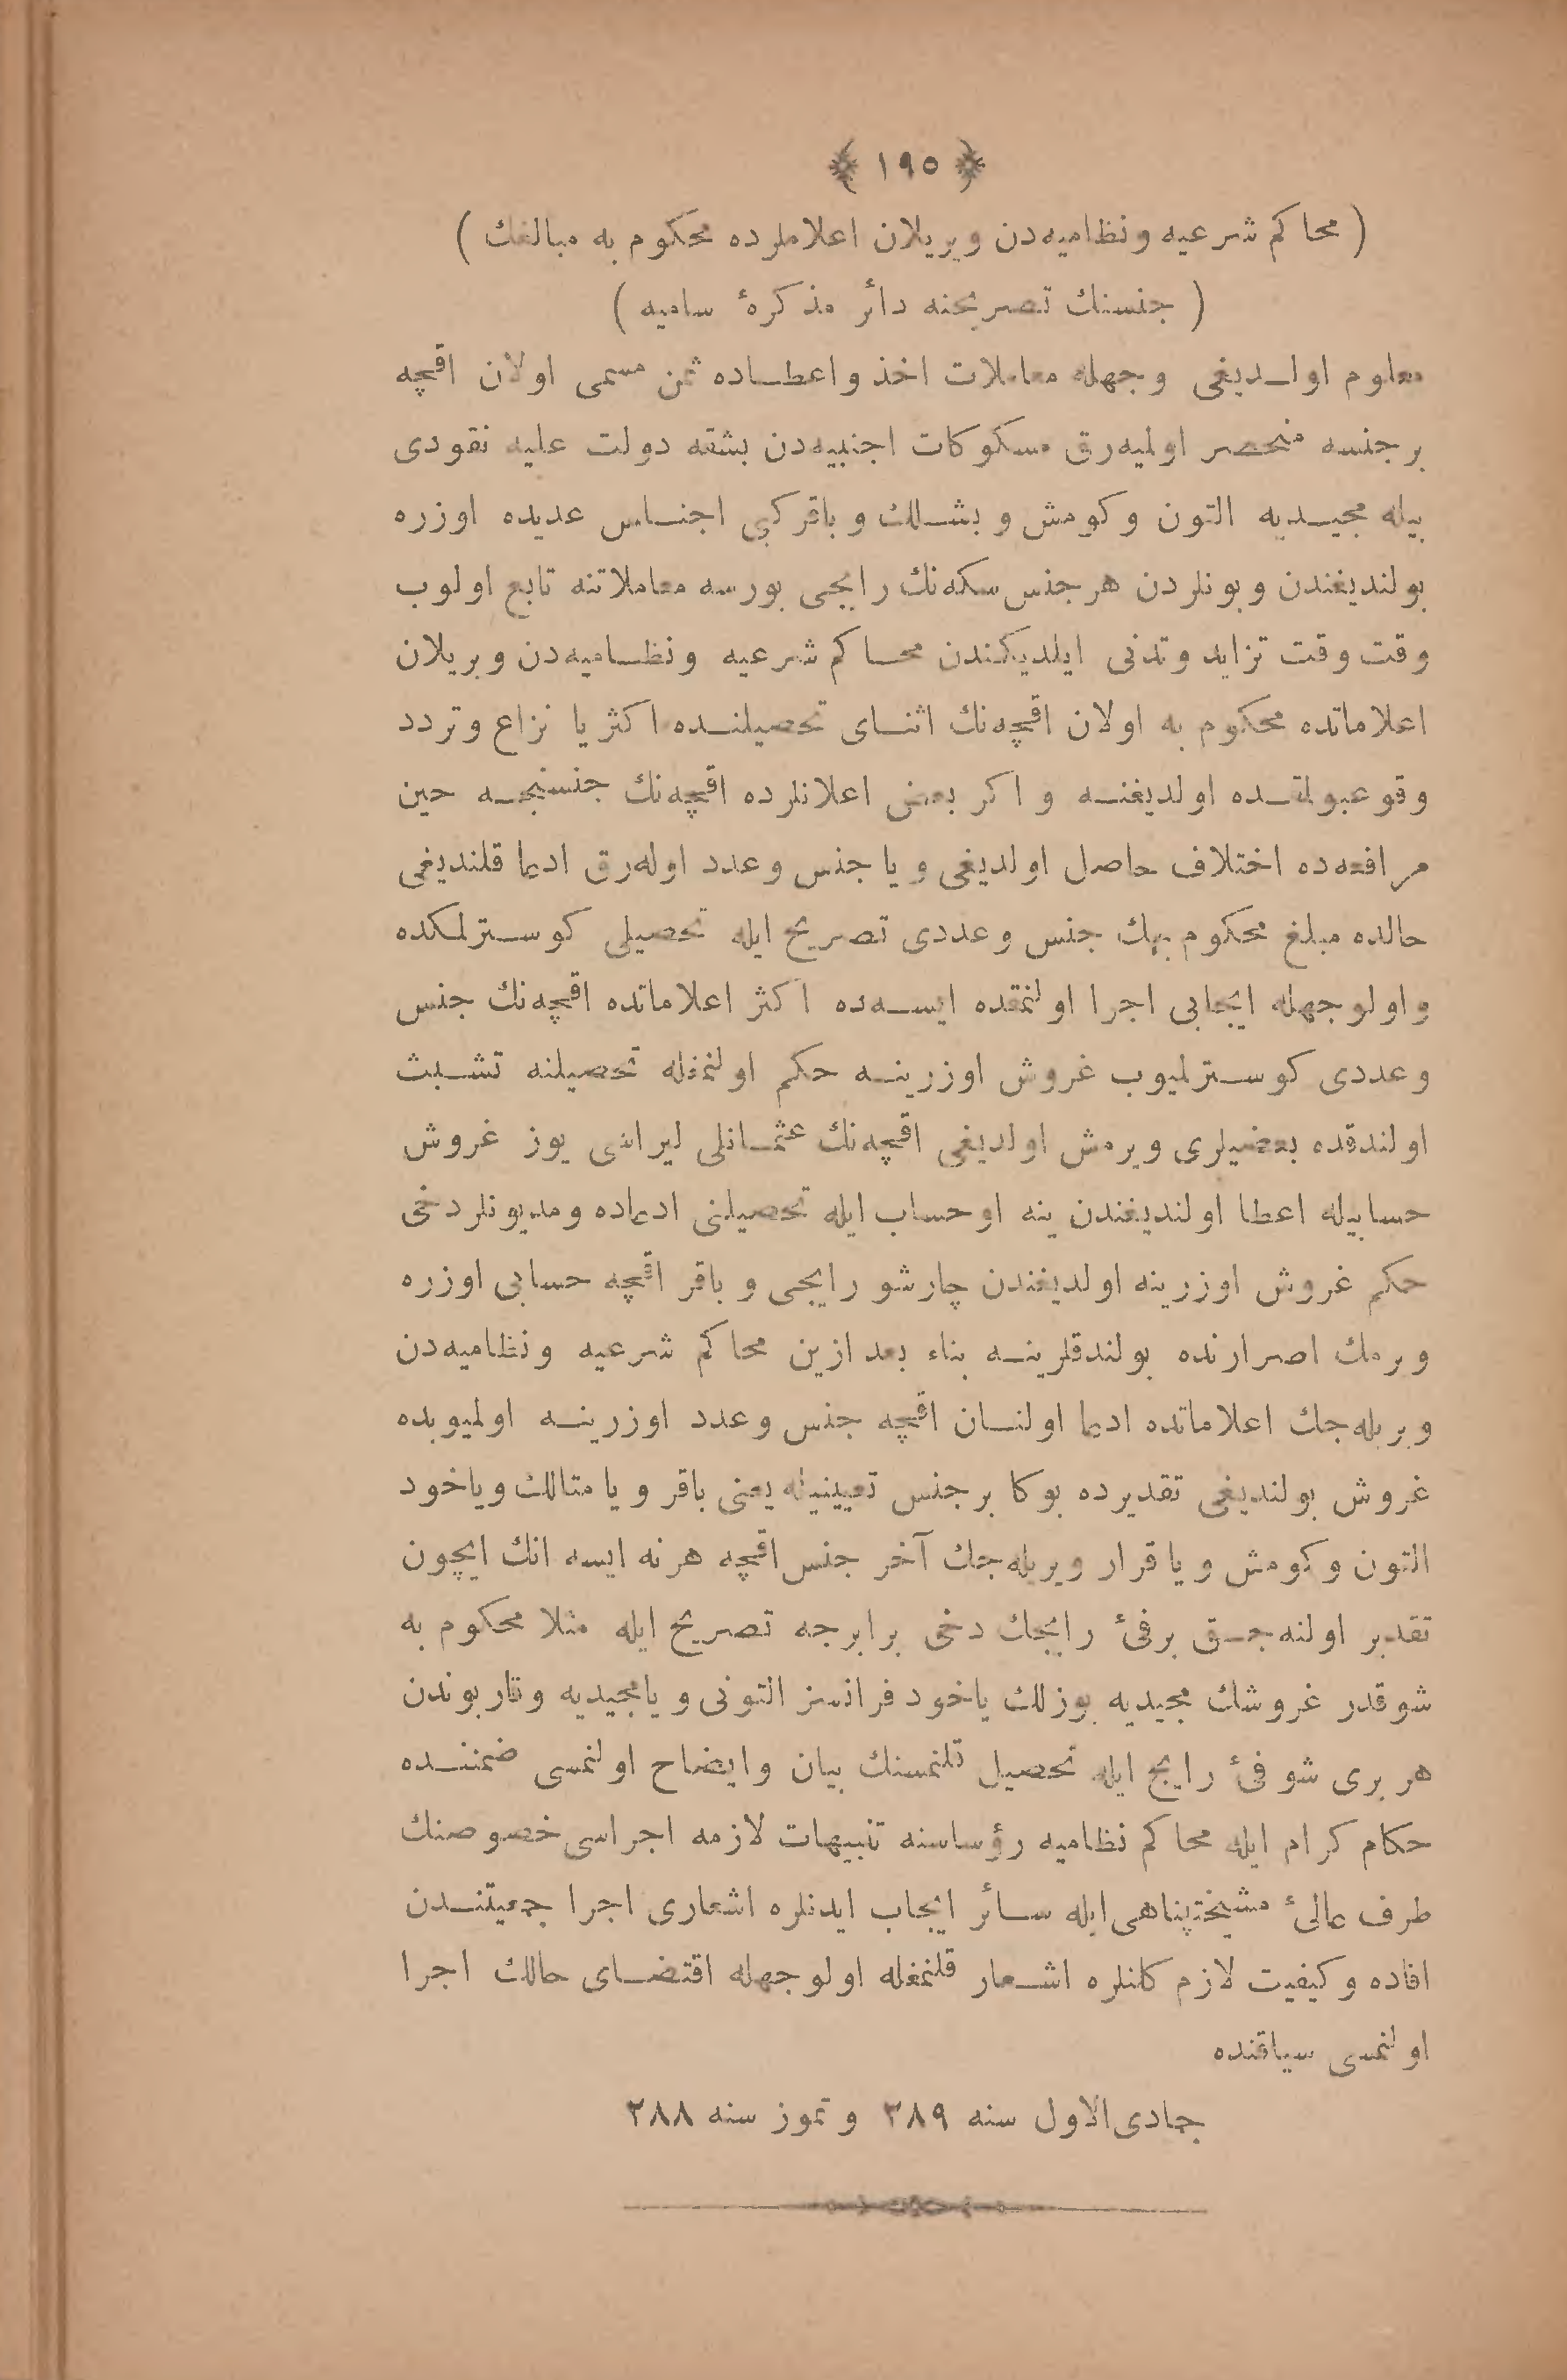 ﴿ ١٩٥ ﴾
( محاكم شرعيه ونظاميه‌دن ويريلان اعلاملرده محكوم به مبالغك )
( جنسنك تصريحنه دائر مذكرهٔ ساميه )
معلوم اولديغى وجهله معاملات اخذ واعطاده ثمن مسمى اولان اقچه
برجنسه منحصر اوليه‌رق مسكوكات اجنبيه‌دن بشقه دولت عليه نقودى
بيله مجيديه التون وكومش وبشلك وباقر كبى اجناس عديده اوزره
بولنديغندن وبونلردن هرجنس سكه‌نك رايجى بورسه معاملاتنه تابع اولوب
وقت وقت تزايد وتدنى ايلديكندن محاكم شرعيه ونظاميه‌دن ويريلان
اعلاماتده محكوم به اولان اقچه‌نك اثناى تحصيلنده اكثريا نزاع وتردد
وقوعبولمقده اولديغنه واكر بعض اعلانلرده اقچه‌نك جنسنجه حين
مرافعه‌ده اختلاف حاصل اولديغى ويا جنس وعدد اوله‌رق ادعا قلنديغى
حالده مبلغ محكوم بهك جنس وعددى تصريح ايله تحصيلى كوسترلمكده
واولوجهله ايجابى اجرا اولنمقده ايسه‌ده اكثر اعلاماتده اقچه‌نك جنس
وعددى كوسترلميوب غروش اوزرينه حكم اولنمغله تحصيلنه تشبث
اولندقده بعضيلرى ويرمش اولديغى اقچه‌نك عثمانلى ليراسى يوز غروش
حسابيله اعطا اولنديغندن ينه اوحساب ايله تحصيلنى ادعاده ومديونلر دخى
حكم غروش اوزرينه اولديغندن چارشو رايجى وباقر اقچه حسابى اوزره
ويرمك اصرارنده بولندقلرينه بناء بعد ازين محاكم شرعيه ونظاميه‌دن
ويريله‌جك اعلاماتده ادعا اولنان اقچه جنس وعدد اوزرينه اولميوبده
غروش بولنديغى تقديرده بوكا برجنس تعيينيله يعنى باقر ويا متالك وياخود
التون وكومش ويا قرار ويريله‌جك آخر جنس اقچه هرنه ايسه انك ايچون
تقدير اولنه‌جق برفىٔ رايجك دخى برابرجه تصريح ايله مثلا محكوم به
شوقدر غروشك مجيديه يوزلك ياخود فرانسز التونى ويامجيديه وقاربوندن
هر برى شو فىٔ رايج ايله تحصيل قلنمسنك بيان وايضاح اولنمسى ضمننده
حكام كرام ايله محاكم نظاميه رؤساسنه تنبيهات لازمه اجراسى خصوصنك
طرف عالىٔ مشيختپناهى ايله سائر ايجاب ايدنلره اشعارى اجرا جمعيتندن
افاده وكيفيت لازم كلنلره اشعار قلنمغله اولوجهله اقتضاى حالك اجرا
اولنمسى سياقنده
جمادى‌الاول سنه ٢٨٩ وتموز سنه ٢٨٨